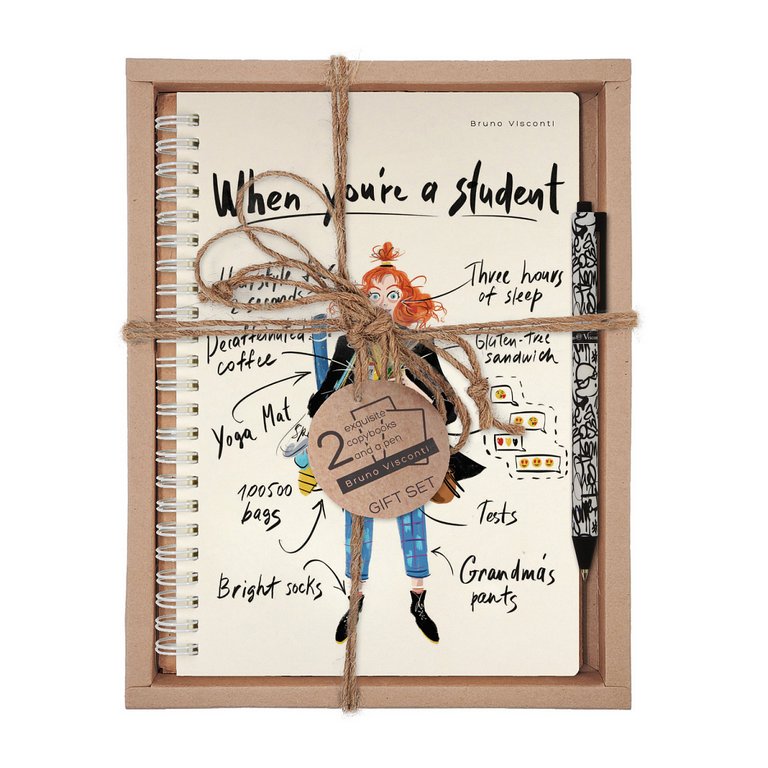 Bruno Visconti
When you're a student
Three hours
of sleep
seconds
Decaffeinated
coffee
Gluten-free
sandwich
Yoga Mat
2 exquisite
copybooks
and a pen
Bruno Visconti
GIFT SET
100500
bags
Tests
Bright socks
Grandma's
pants